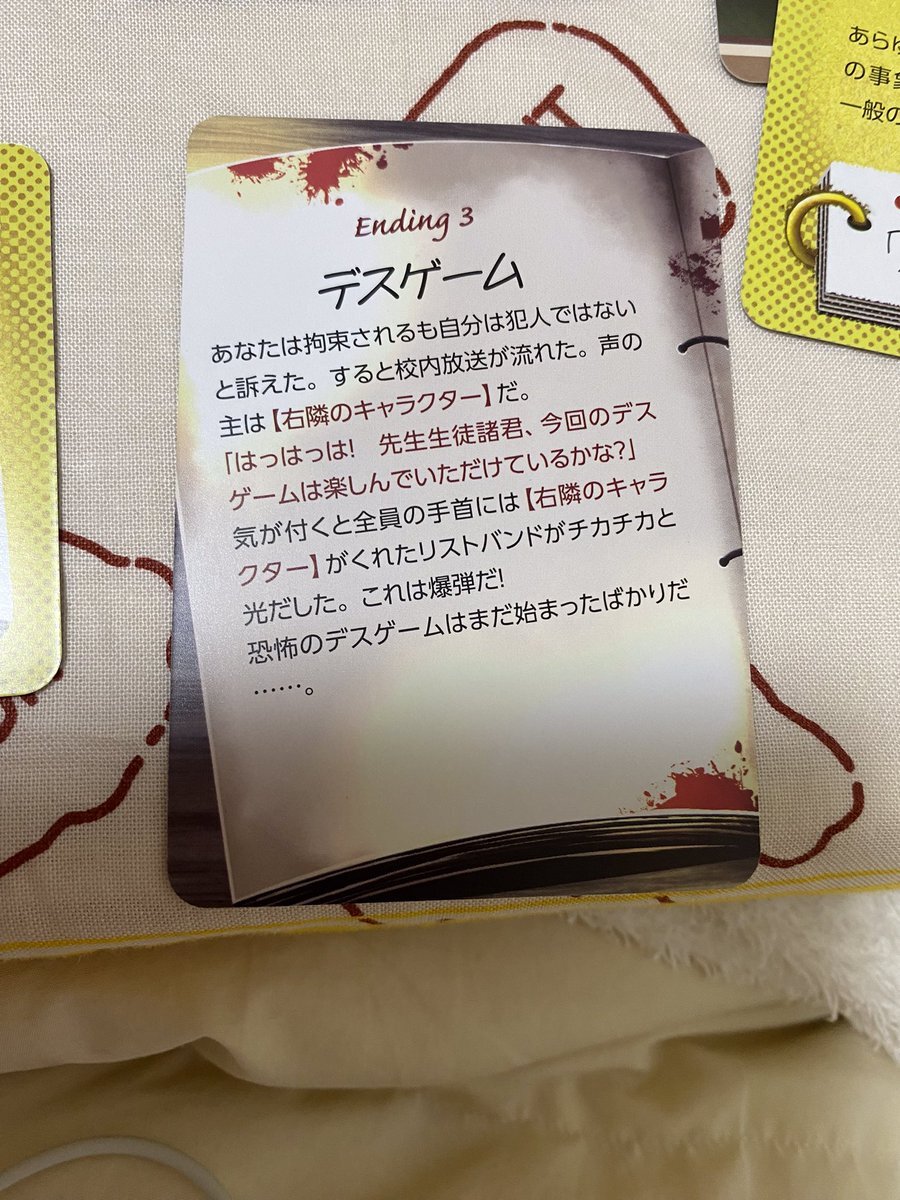 Ending 3
デスゲーム
あなたは拘束されるも自分は犯人ではない
と訴えた。すると校内放送が流れた。声の
主は【右隣のキャラクター】だ。
「はっはっは!　先生生徒諸君、今回のデス
ゲームは楽しんでいただけているかな?」
気が付くと全員の手首には【右隣のキャラ
クター】がくれたリストバンドがチカチカと
光だした。これは爆弾だ!
恐怖のデスゲームはまだ始まったばかりだ
……。
あらゆ
の事象
一般の